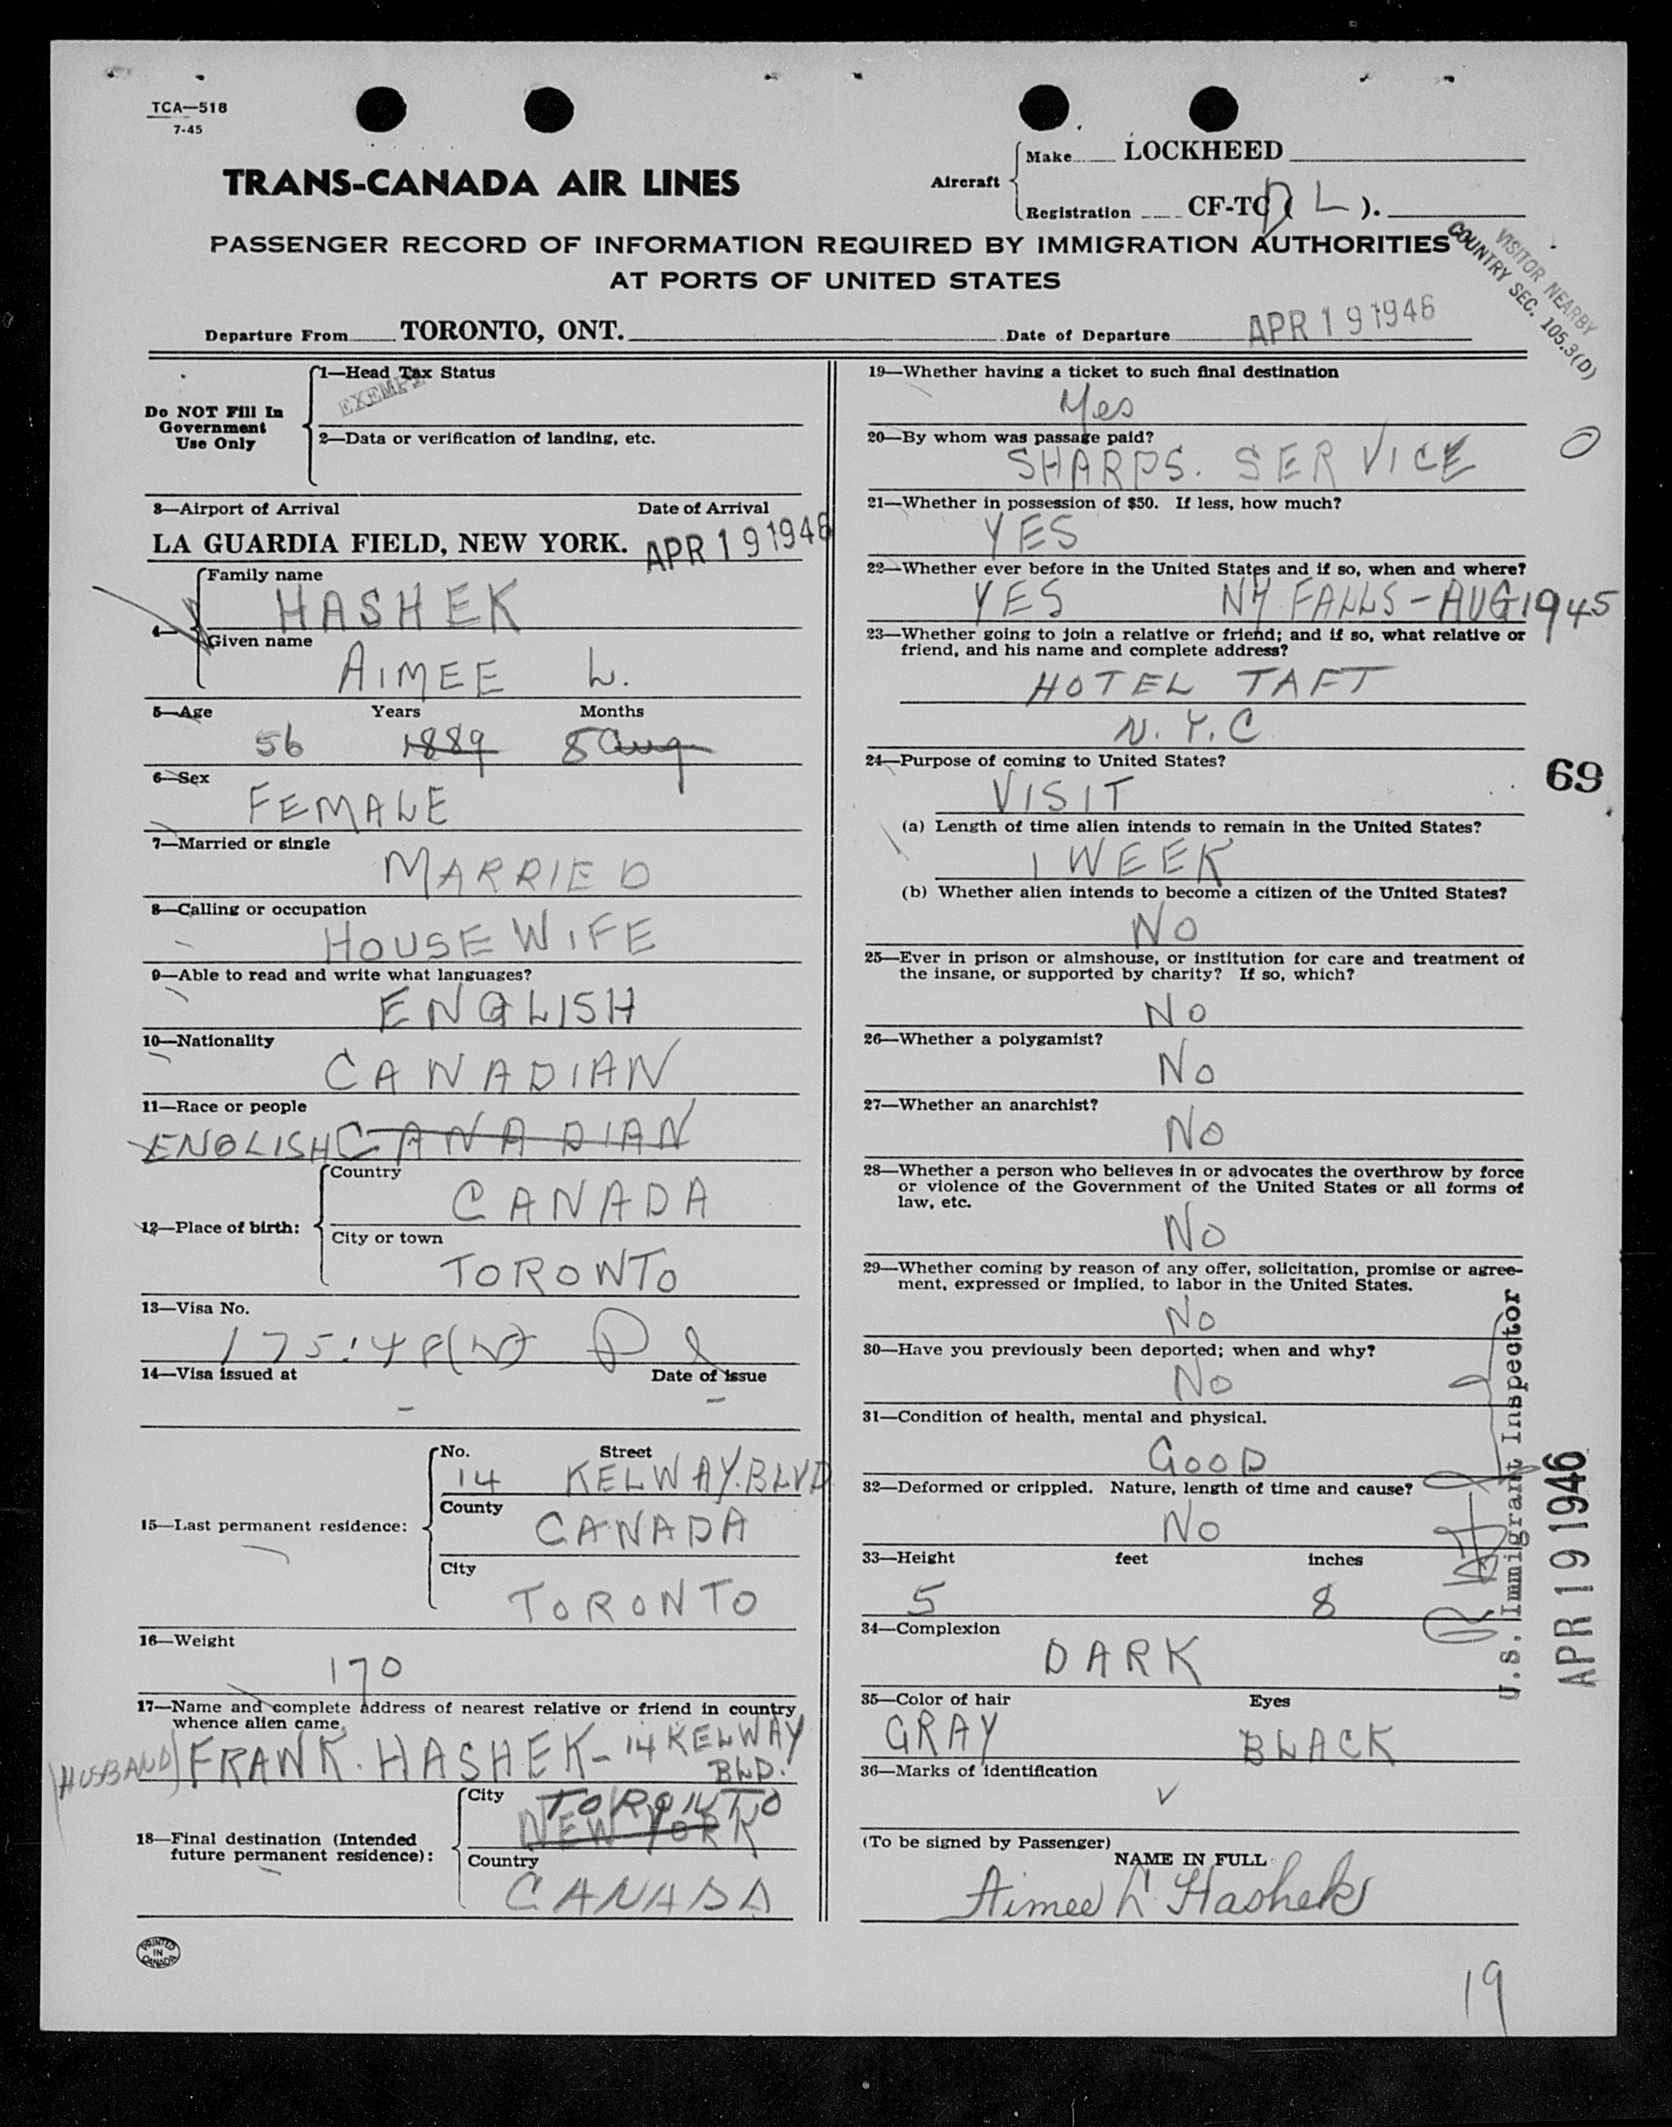 TCA—518
7-45
TRANS-CANADA AIR LINES
Aircraft
Make LOCKHEED
Registration CF-TC ( L ).
PASSENGER RECORD OF INFORMATION REQUIRED BY IMMIGRATION AUTHORITIES
AT PORTS OF UNITED STATES
VISITOR NEARBY
COUNTRY SEC. 105.3(D)
Departure From TORONTO, ONT. Date of Departure APR 19 1946
Do NOT Fill In
Government
Use Only
1—Head Tax Status
EXEMPT
2—Data or verification of landing, etc.
3—Airport of Arrival Date of Arrival
LA GUARDIA FIELD, NEW YORK. APR 19 1946
4—
Family name
HASHEK
Given name
AIMEE L.
5—Age Years Months
56 1889 8 Aug
6—Sex
FEMALE
7—Married or single
MARRIED
8—Calling or occupation
HOUSE WIFE
9—Able to read and write what languages?
ENGLISH
10—Nationality
CANADIAN
11—Race or people
ENGLISH CANADIAN
12—Place of birth:
Country
CANADA
City or town
TORONTO
13—Visa No.
14—Visa issued at Date of issue
- -
15—Last permanent residence:
No. Street
14 KELWAY. BLVD
County
CANADA
City
TORONTO
16—Weight
170
17—Name and complete address of nearest relative or friend in country
whence alien came.
(HUSBAND) FRANK. HASHEK - 14 KELWAY
BLD.
18—Final destination (Intended
future permanent residence):
City
TORONTO
NEW YORK
Country
CANADA
PRINTED
IN
CANADA
19—Whether having a ticket to such final destination
Yes
20—By whom was passage paid?
SHARPS. SERVICE
0
21—Whether in possession of $50. If less, how much?
YES
22—Whether ever before in the United States and if so, when and where?
YES NY FALLS - AUG 1945
23—Whether going to join a relative or friend; and if so, what relative or
friend, and his name and complete address?
HOTEL TAFT
N. Y. C
24—Purpose of coming to United States?
VISIT
69
(a) Length of time alien intends to remain in the United States?
1 WEEK
(b) Whether alien intends to become a citizen of the United States?
NO
25—Ever in prison or almshouse, or institution for care and treatment of
the insane, or supported by charity? If so, which?
NO
26—Whether a polygamist?
NO
27—Whether an anarchist?
NO
28—Whether a person who believes in or advocates the overthrow by force
or violence of the Government of the United States or all forms of
law, etc.
NO
29—Whether coming by reason of any offer, solicitation, promise or agree-
ment, expressed or implied, to labor in the United States.
NO
30—Have you previously been deported; when and why?
NO
31—Condition of health, mental and physical.
GOOD
32—Deformed or crippled. Nature, length of time and cause?
NO
33—Height feet inches
5 8
34—Complexion
DARK
35—Color of hair Eyes
GRAY BLACK
36—Marks of identification
(To be signed by Passenger)
NAME IN FULL
Aimee L. Hashek
U.S. Immigrant Inspector
APR 19 1946
19